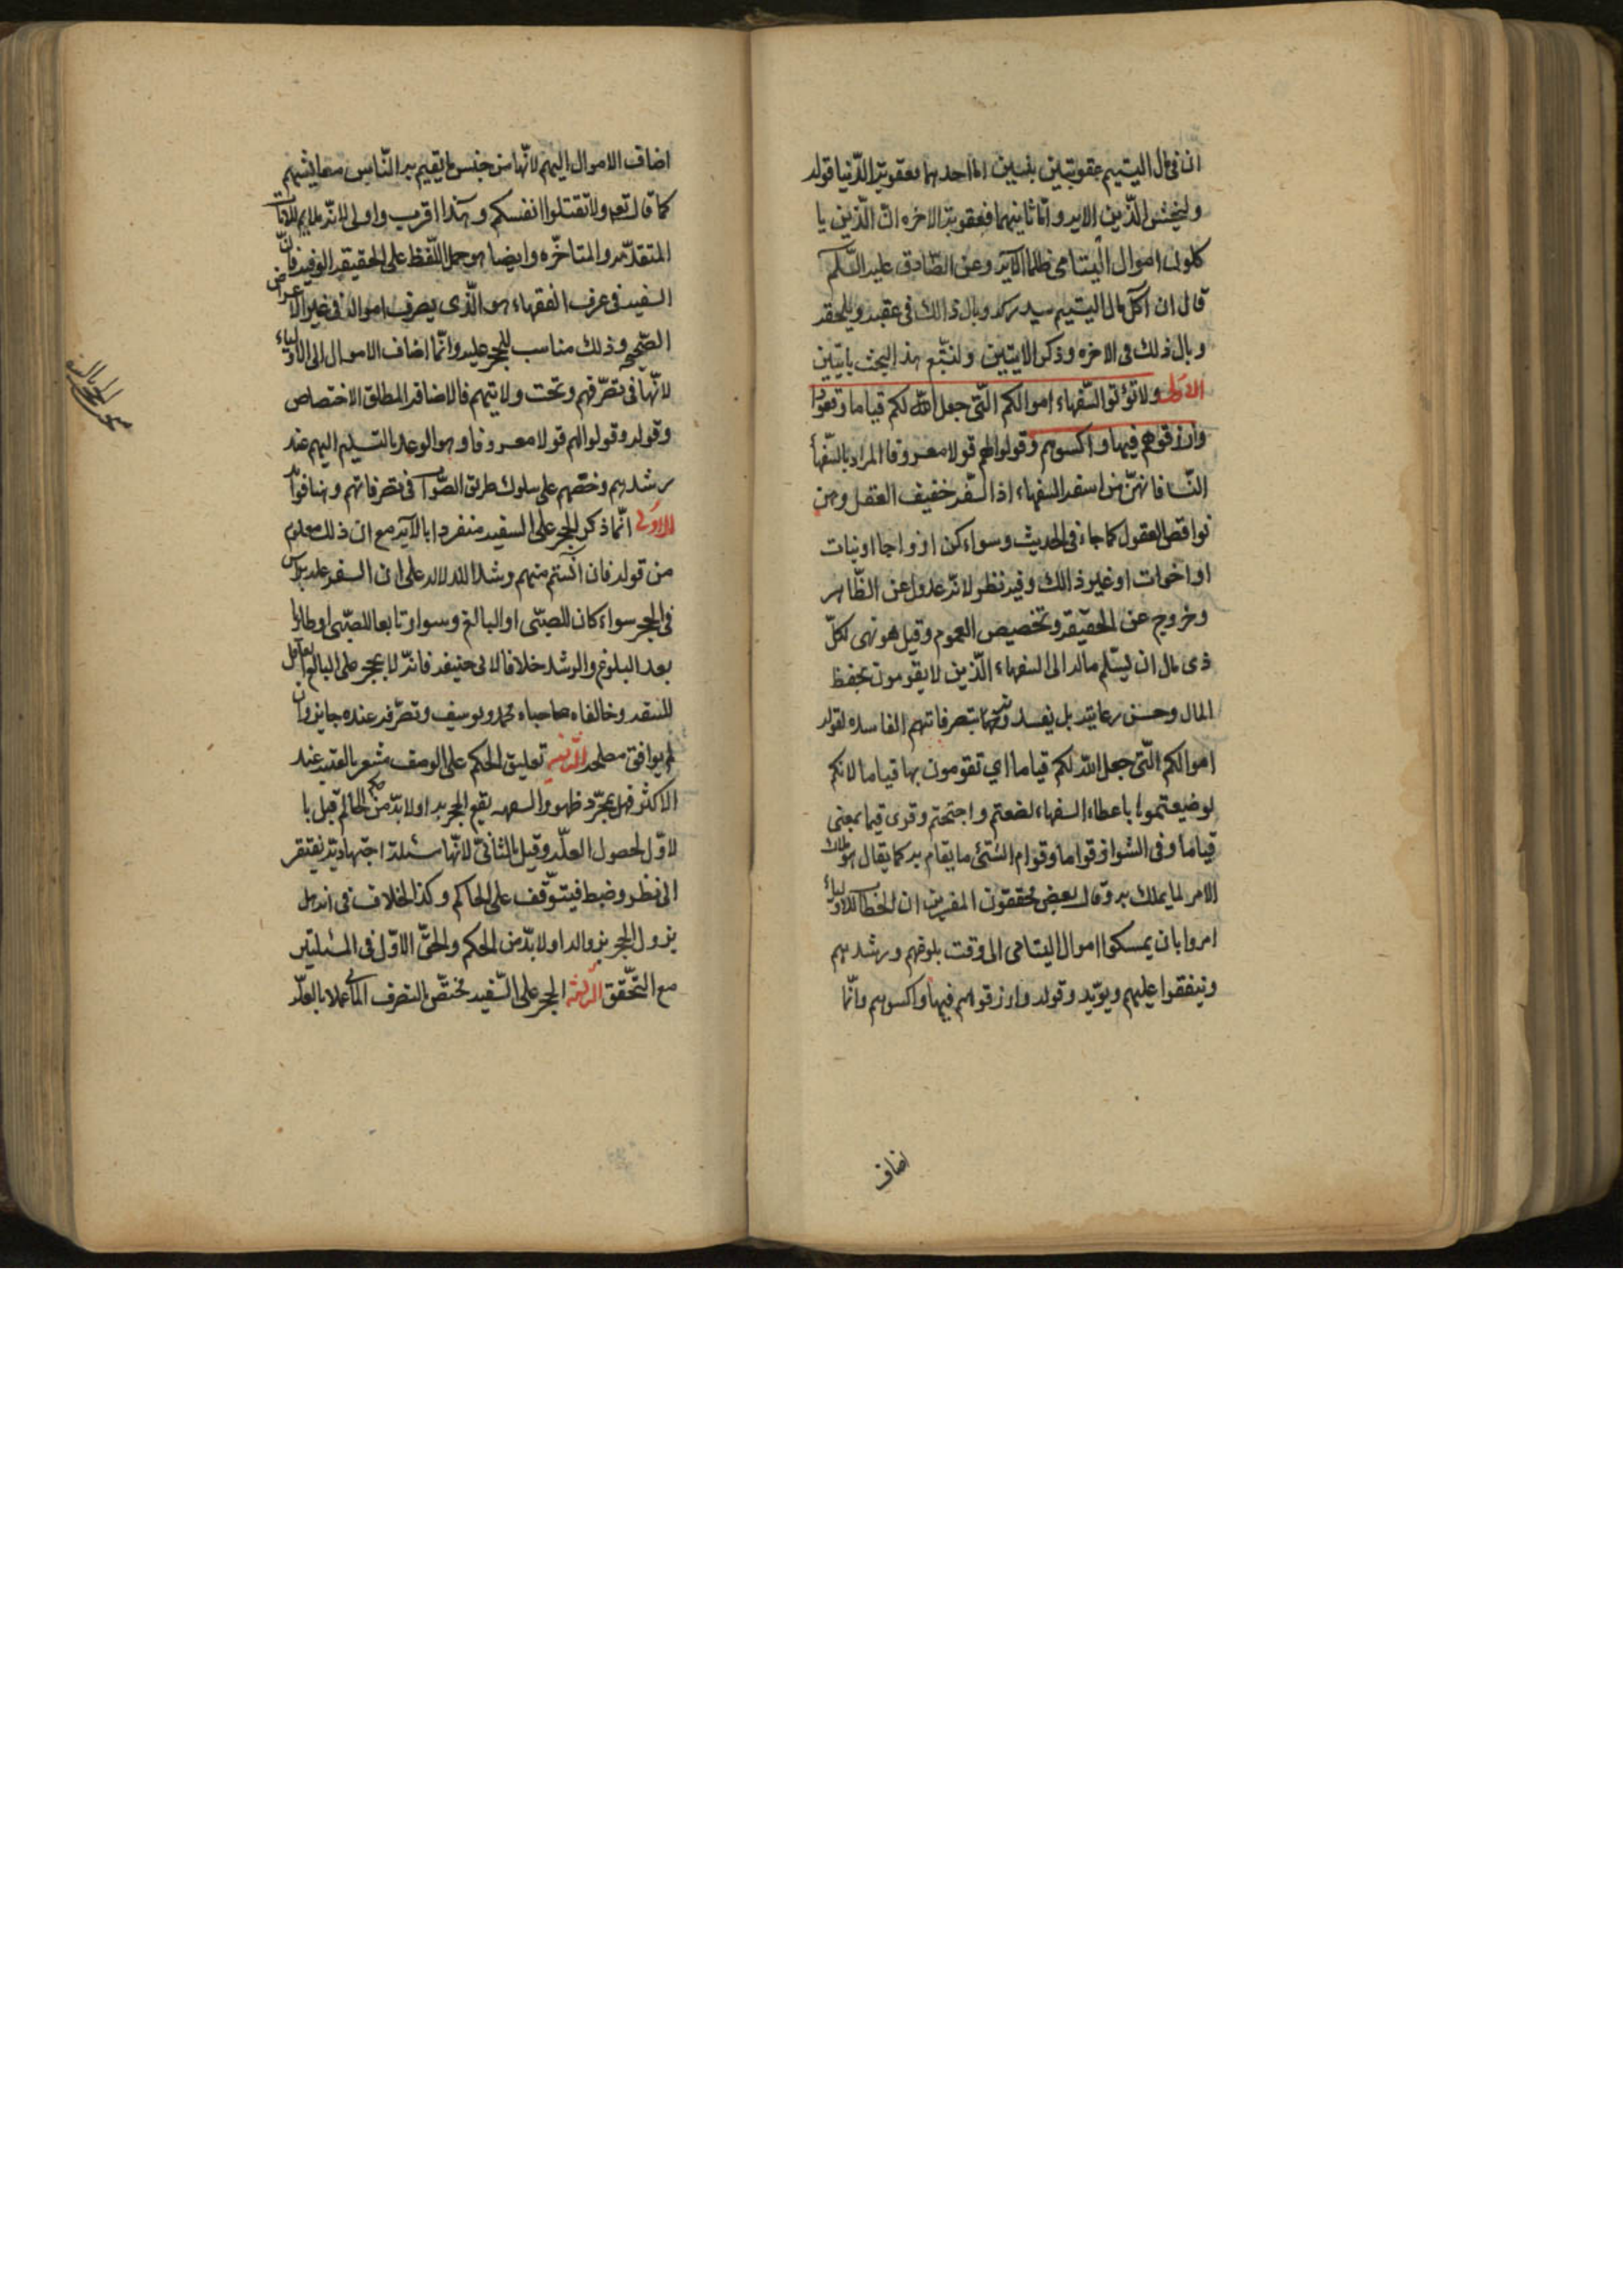 ان فى مال اليتيم عقوبتين بنسين اما احدهما فعقوبة الدّنيا قوله
وليخش الّذين الايه وامّا ثانيهما فعقوبة الاخره انّ الّذين يا
كلون اموال اليتامى ظلما الآيه وعن الصّادق عليه السّلم
قال ان آكل مال اليتيم سيدركه وبال ذالك فى عقبه ويلحقه
وبال ذلك فى الاخره وذكر الايتين ولنتبع هذا البحث بايتين
الاولى ولا تؤتوا السّفهاء اموالكم الّتى جعل اللّه لكم قياما
وارزقوهم فيها واكسوهم وقولوا لهم قولا معروفا المراد بالسّفهاء
النّسا فانهنّ من اسفه السفهاء اذ السّفه خفيف العقل وهن
نواقص العقول كما جاء فى الحديث وسواء كن ازواجا او بنات
او اخوات او غير ذالك وفيه نظر لانّه عدول عن الظّاهر
وخروج عن الحقيقه وتخصيص العموم وقيل هو نهى لكلّ
ذى مال ان يسّلم ماله الى السفهاء الّذين لا يقومون بحفظ
المال وحسن رعايته بل يفسدونها بتصرفاتهم الفاسده لقوله
اموالكم الّتى جعل اللّه لكم قياما اي تقومون بها قياما لانكم
لو ضيعتموها باعطاء السفهاء لضعتم واحتجتم وقرى قيما بمعنى
قياما وفى الشواذ قواما وقوام الشّئ ما يقام به كما يقال هو ملاك
الامر لما يملك به وقال بعض محققون المفسرين ان الخطاب للاولياء
امروا بان يمسكوا اموال اليتامى الى وقت بلوغهم ورشدهم
وينفقوا عليهم ويؤيّد وقوله وارزقوهم فيها واكسوهم وانّما
اضاف
اضاف الاموال اليهم لانّها من جنس ما يقيم به النّاس معايشهم
كما قال تع ولا تقتلوا انفسكم وهذا اقرب واولى لانّه ملايم للايات
المتقدّمه والمتاخّره وايضا هو حمل اللّفظ على الحقيقه العرفيه فانّ
السفيه فى عرف الفقهاء هو الّذى يصرف امواله فى غير الاغراض
الصّحيحه وذلك مناسب للحجر عليه وانّما اضاف الاموال الى الاولياء
لانّها فى تصرّفهم وتحت ولايتهم فالاضافه المطلق الاختصاص
وقوله وقولوا لهم قولا معروفا وهو الوعد بالتسليم اليهم عند
رشدهم وحضّهم على سلوك طريق الصّواب فى تصرفاتهم وهنا فوائد
الاولى انّما ذكر الحجر على السفيه منفردا بالآيه مع ان ذلك معلوم
من قوله فان آنستم منهم رشدا للدلاله على ان السفه عله براس
فى الحجر سواء كان للصبّى او البالغ وسواء تابعا للصبّى او طاريا
بعد البلوغ والرشد خلافا لابى حنيفه فانّه لا يحجر على البالغ العاقل
للسفه وخالفاه صاحباه محمد ويوسف وتصرّفه عنده جايز وان
لم يوافق مصلحه الثّانيه تعليق الحكم على الوصف مشعر بالعليه عند
الاكثر فهل بمجرّد ظهور السفه يقع الحجر به او لا بدّ من حكم الحاكم قيل با
لاوّل لحصول العلّه وقيل بالثانىّ لانّها مسئلة اجتهاديّه تفتقر
الى نظر وضبط فيتوّقف على الحاكم وكذا الخلاف فى انه هل
يزول الحجر بزواله او لا بدّ من الحكم والحقّ الاوّل فى المسئلتين
مع التّحقق الثّالثه الحجر على السّفيه مختصّ بالتصرف المالى عملا بالعلّه